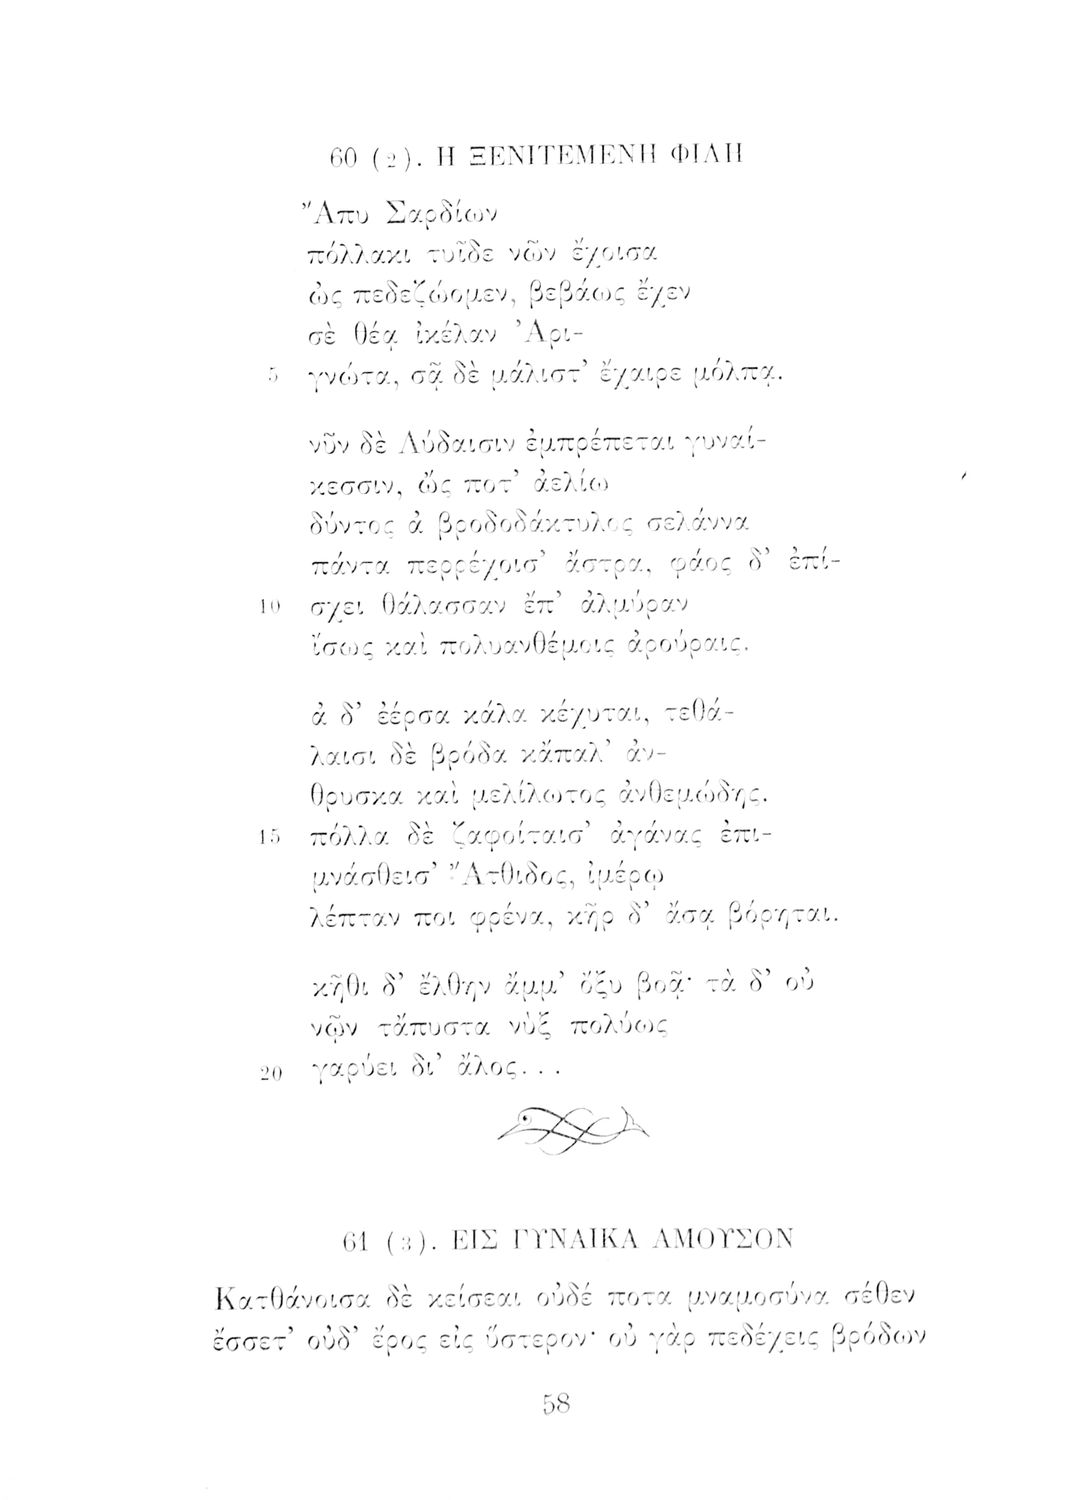 60 (2). Η ΞΕΝΙΤΕΜΕΝΗ ΦΙΛΗ
Ἄπυ Σαρδίων
πόλλακι τυῖδε νῶν ἔχοισα
ὠς πεδεζώομεν, βεβάως ἔχεν
σὲ θέᾳ ἰκέλαν Ἀρι-
5 γνώτα, σᾷ δὲ μάλιστ’ ἔχαιρε μόλπᾳ.
νῦν δὲ Λύδαισιν ἐμπρέπεται γυναί-
κεσσιν, ὤς ποτ’ ἀελίω
δύντος ἀ βροδοδάκτυλος σελάννα
πάντα περρέχοισ’ ἄστρα, φάος δ’ ἐπί-
10 σχει θάλασσαν ἔπ’ ἀλμύραν
ἴσως καὶ πολυανθέμοις ἀρούραις.
ἀ δ’ ἐέρσα κάλα κέχυται, τεθά-
λαισι δὲ βρόδα κἄπαλ’ ἀν-
θρυσκα καὶ μελίλωτος ἀνθεμώδης.
15 πόλλα δὲ ζαφοίταισ’ ἀγάνας ἐπι-
μνάσθεισ’ Ἄτθιδος, ἰμέρῳ
λέπταν ποι φρένα, κῆρ δ’ ἄσᾳ βόρηται.
κῆθι δ’ ἔλθην ἄμμ’ ὄξυ βοᾷ· τὰ δ’ οὐ
νῷν τἄπυστα νὺξ πολύως
20 γαρύει δι’ ἄλος...
61 (3). ΕΙΣ ΓΥΝΑΙΚΑ ΑΜΟΥΣΟΝ
Κατθάνοισα δὲ κείσεαι οὐδέ ποτα μναμοσύνα σέθεν
ἔσσετ’ οὐδ’ ἔρος εἰς ὔστερον· οὐ γὰρ πεδέχεις βρόδων
58